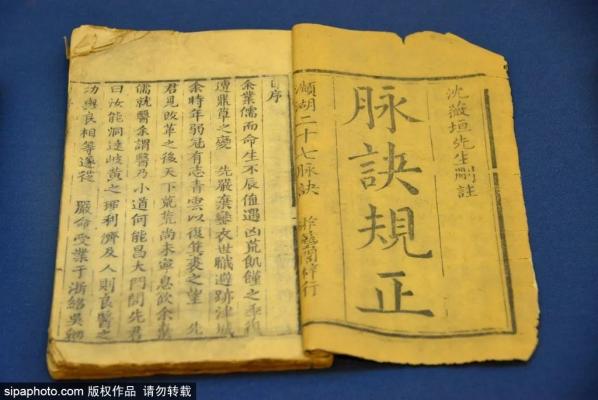 沈薇垣先生刪註
脉訣規正
瀕湖二十七脉訣 梓行
自序
余業儒而命生不辰值遇凶荒飢饉之年復
遭鼎革之變 先嚴棄 衣世職遯跡津城
余時年弱冠有志青雲以復箕裘之望 先
君見改革之後天下荒荒尚未寧息欲余棄
儒就醫余謂醫乃小道何能昌大門閭先君
曰汝能洞達岐黄之理利濟及人則良醫之
功與良相等遂從 嚴命受業于浙紹吳卿
图虫 sipaphoto.com 版权作品 请勿转载